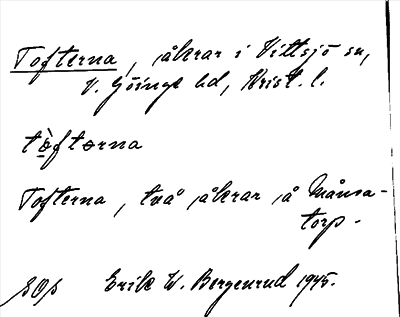 Tofterna, åkrar i Vittsjö sn,
V. Göinge hd, Krist. l.
tòftɘrna
Tofterna, två åkrar å Månsa-
torp.
Erik W. Bergenrud 1945.